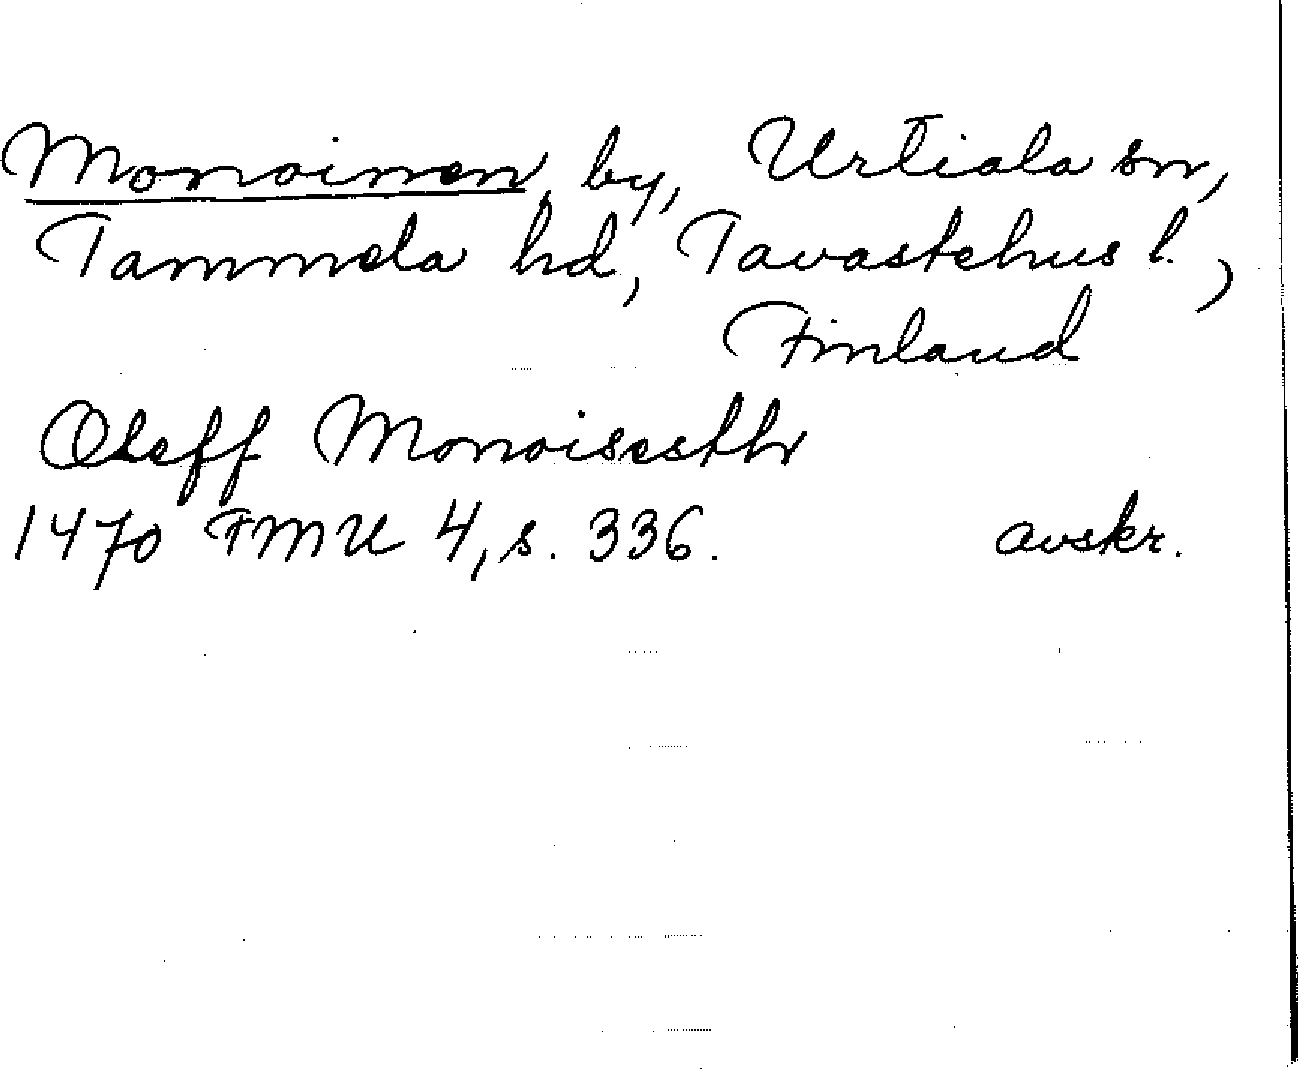 Monoinen, by, Urtiala sn,
Tammela hd, Tavastehus l.,
Finland
Oleff Monoisesthr
1470 FMU 4, s. 336. avskr.